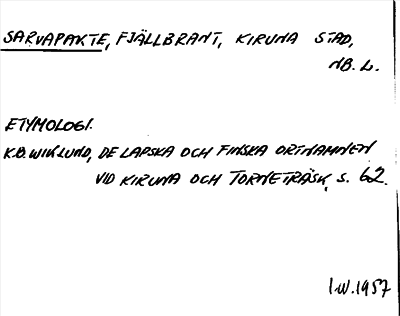 SARVAPAKTE, FJÄLLBRANT, KIRUNA STAD,
NB. L.
ETYMOLOGI.
K.B. WIKLUND, DE LAPSKA OCH FINSKA ORTNAMNEN
VID KIRUNA OCH TORNETRÄSK, S. 62.
I.W. 1957